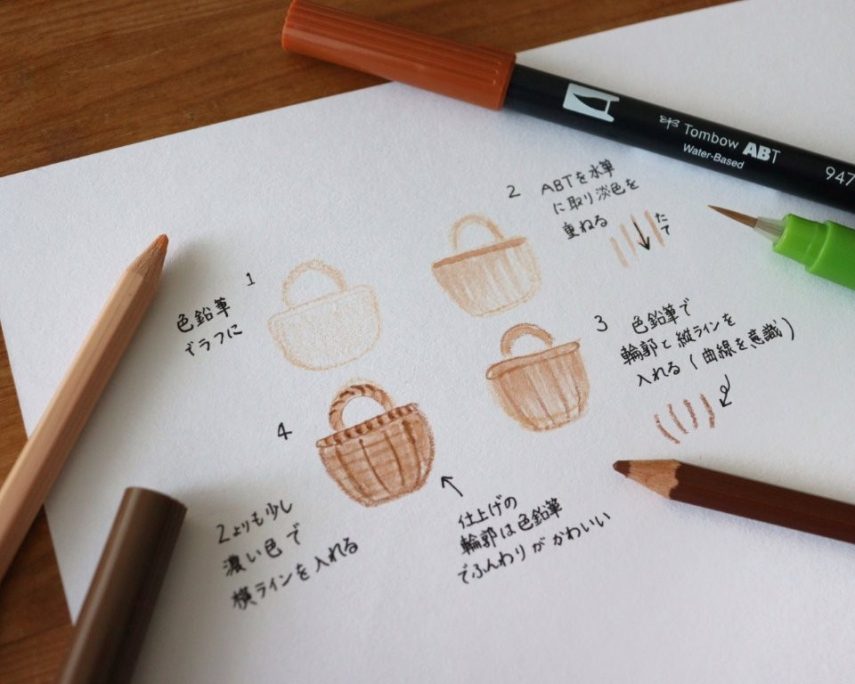 Tombow ABT
Water-Based
947
1
色鉛筆
でラフに
2
ABTを水筆
に取り淡色を
重ねる
たて
3
色鉛筆で
輪郭と縦ラインを
入れる(曲線を意識)
4
2よりも少し
濃い色で
横ラインを入れる
仕上げの
輪郭は色鉛筆
でふんわりが かわいい